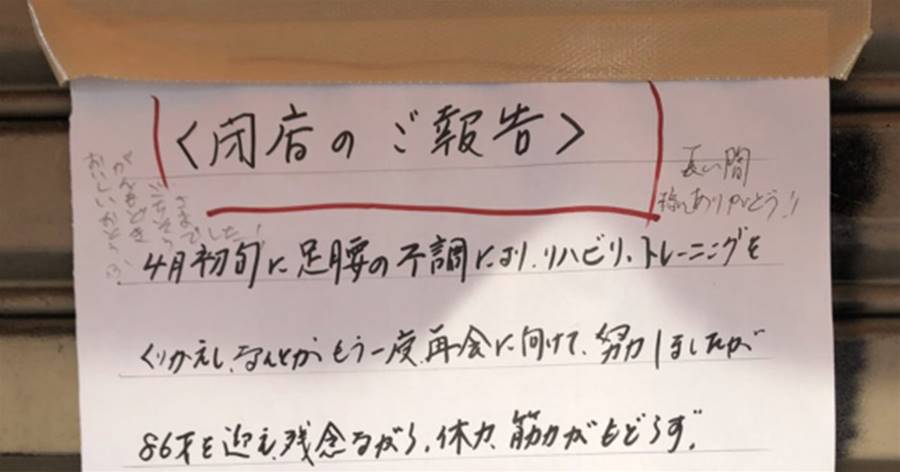 <閉店のご報告>
長い間
ありがとう!!
おいしいおとうふ
がんもどき
ごちそう
さまでした!
4月初旬に足腰の不調により、リハビリ、トレーニングを
くりかえし、なんとか、もう一度、再会に向けて、努力しましたが
86才を迎え、残念ながら、体力、筋力がもどらず、